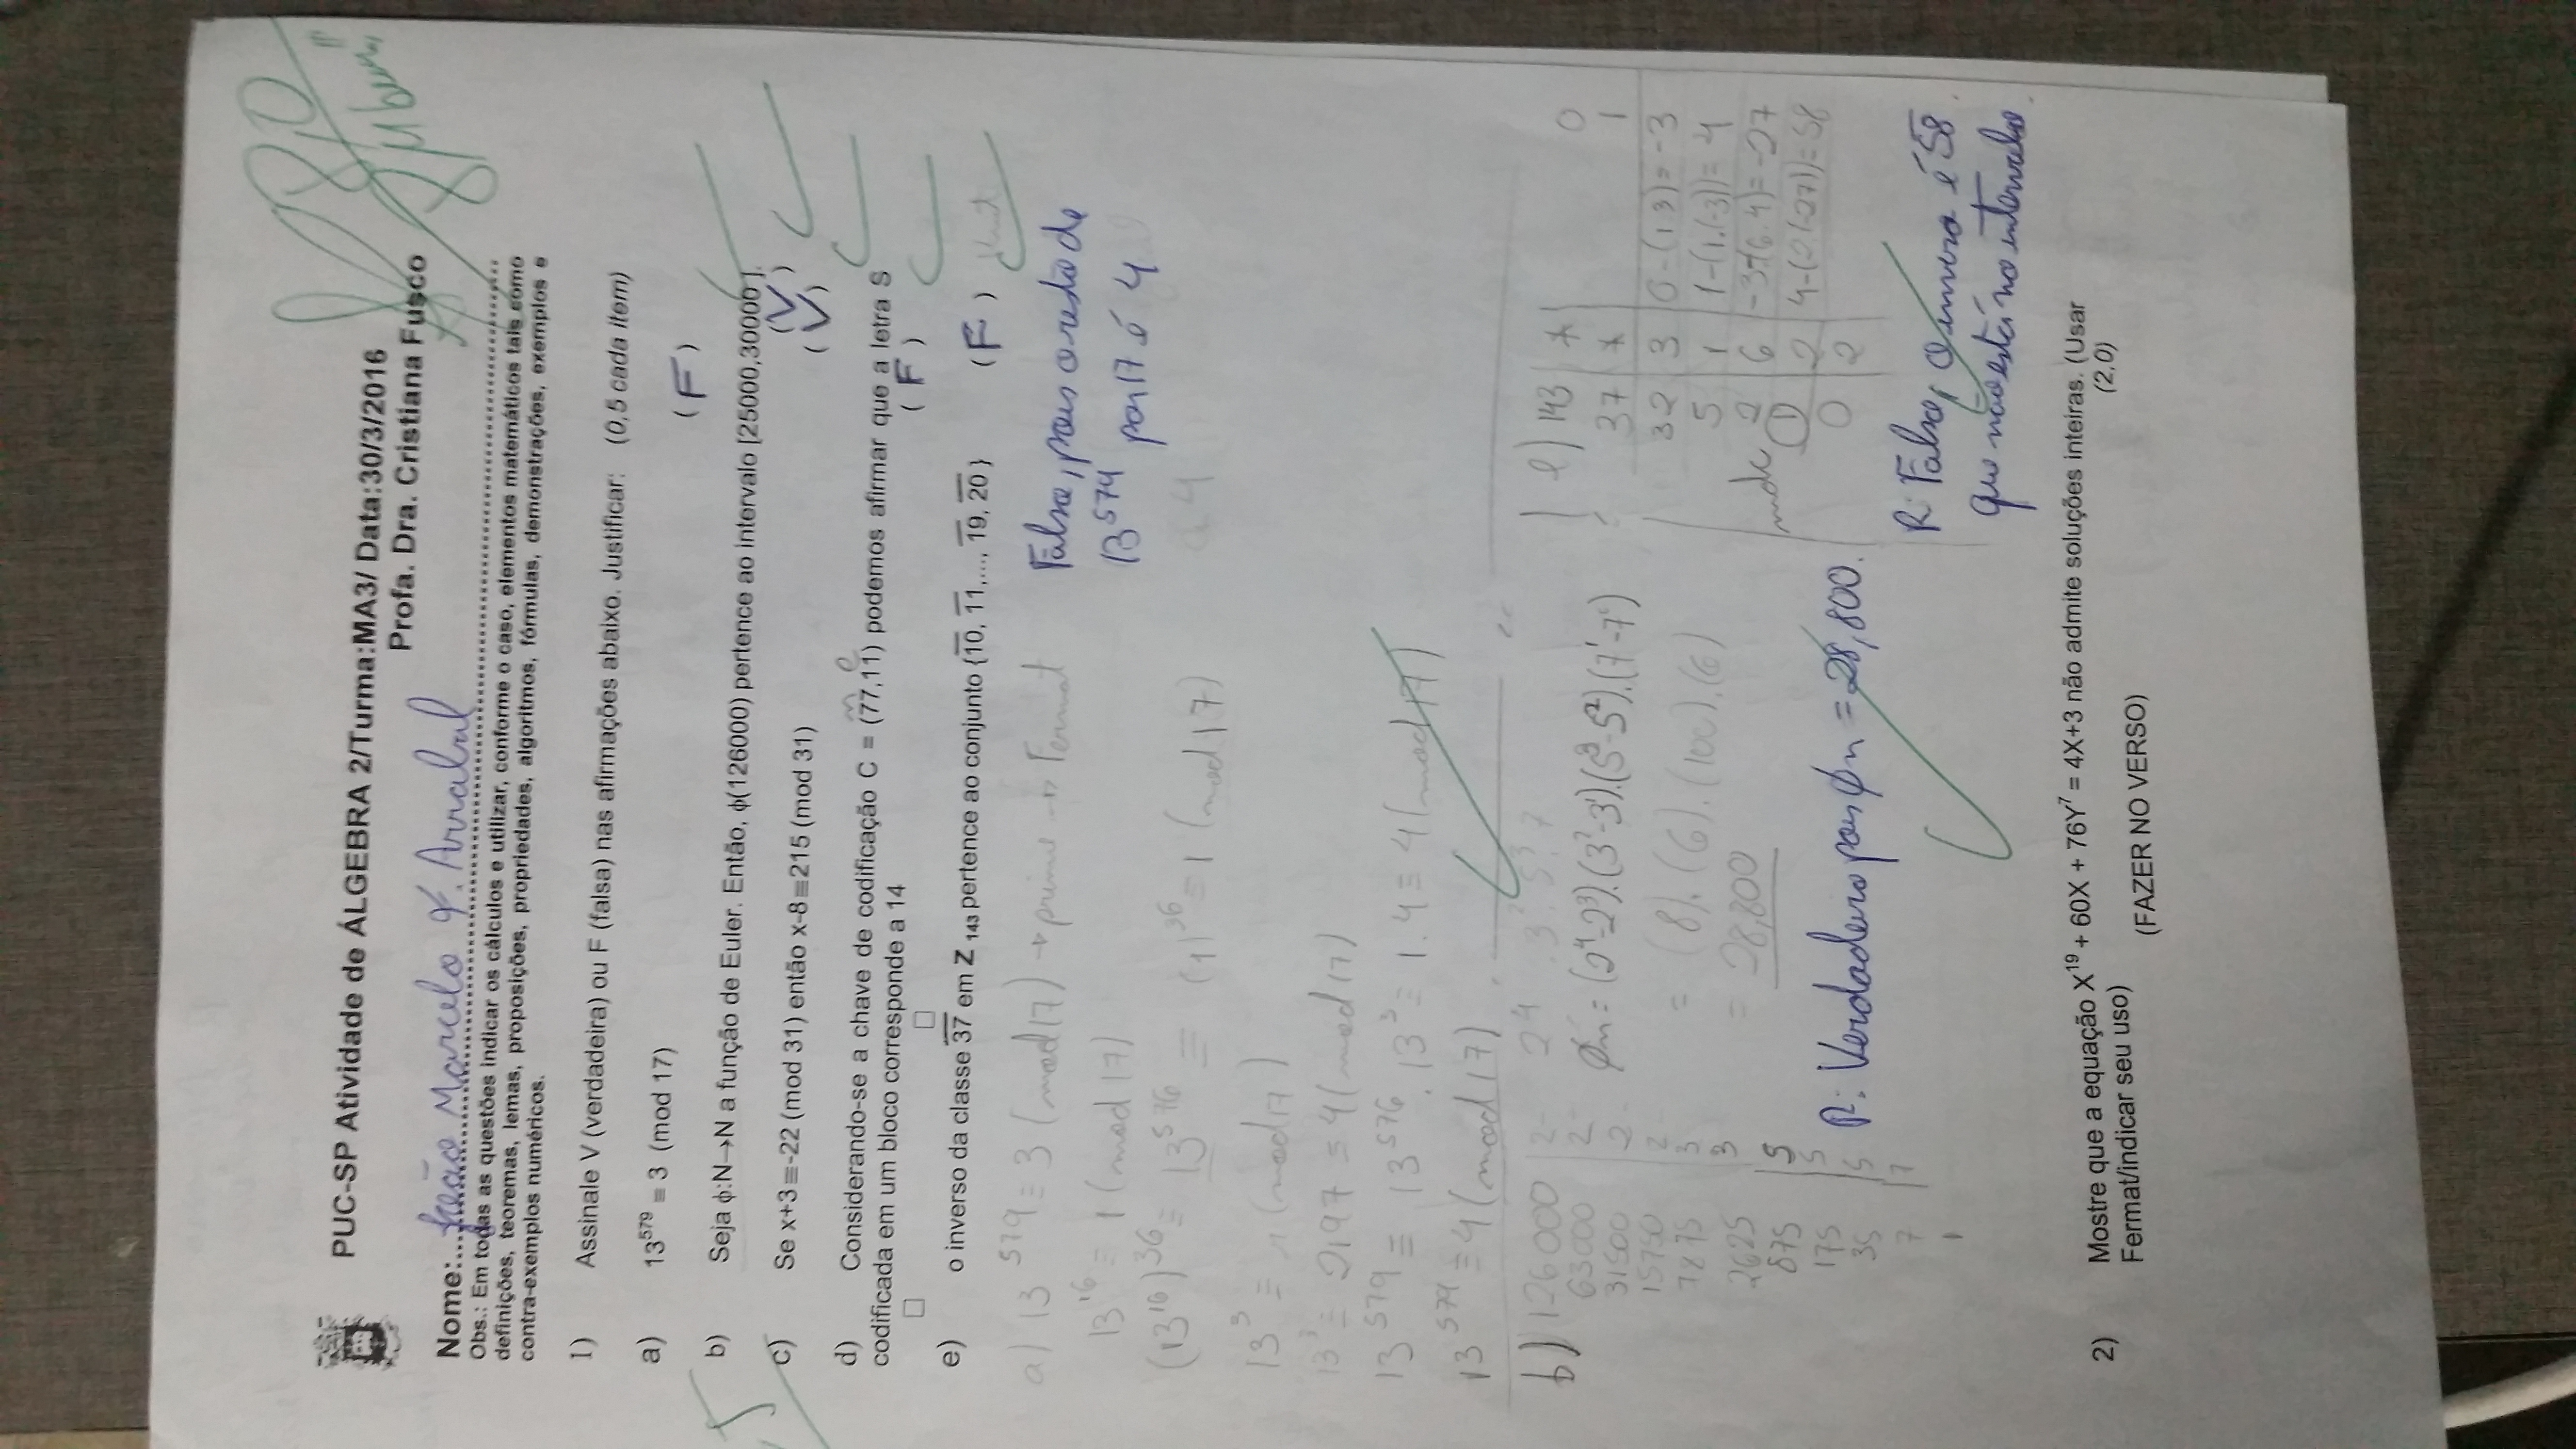 PUC-SP Atividade de ÁLGEBRA 2/Turma:MA3/ Data:30/3/2016
Profa. Dra. Cristiana Fusco
8,0
Nome: João Marcelo F. Arrabal
Obs.: Em todas as questões indicar os cálculos e utilizar, conforme o caso, elementos matemáticos tais como
definições, teoremas, lemas, proposições, propriedades, algoritmos, fórmulas, demonstrações, exemplos e
contra-exemplos numéricos.
1) Assinale V (verdadeira) ou F (falsa) nas afirmações abaixo. Justificar: (0,5 cada item)
a) 13⁵⁷⁹ ≡ 3 (mod 17) (F)
b) Seja ϕ:N→N a função de Euler. Então, ϕ(126000) pertence ao intervalo [25000,30000 ].
(V)
c) Se x+3≡-22 (mod 31) então x-8≡215 (mod 31) (V)
d) Considerando-se a chave de codificação C = (77,11) podemos afirmar que a letra S
codificada em um bloco corresponde a 14 (F)
e) o inverso da classe 37 em Z 143 pertence ao conjunto {10, 11,..., 19, 20 } (F)
a) 13⁵⁷⁹ ≡ 3 (mod 17) → primo → Fermat
13¹⁶ ≡ 1 (mod 17)
(13¹⁶)³⁶ ≡ 13⁵⁷⁶ ≡ (1)³⁶ ≡ 1 (mod 17)
13³ ≡ (mod 17)
13³ ≡ 2197 ≡ 4 (mod 17)
13⁵⁷⁹ ≡ 13⁵⁷⁶ . 13³ ≡ 1 . 4 ≡ 4 (mod 17)
13⁵⁷⁹ ≡ 4 (mod 17)
Falso, pois o resto de
13⁵⁷⁹ por 17 é 4
b) 126000 | 2
63000 | 2
31500 | 2
15750 | 2
7875 | 3
2625 | 3
875 | 5
175 | 5
35 | 5
7 | 7
1
2⁴ . 3² . 5³ . 7
ϕn = (2⁴-2³).(3²-3¹).(5³-5²).(7¹-7⁰)
= (8).(6).(100).(6)
= 28,800
R: Verdadeiro pois ϕn = 28,800.
e) 143 | * | 0
37 | * | 1
32 | 3 | 0-(1.3)=-3
5 | 1 | 1-(1.(-3))=4
2 | 6 | -3-(6.4)=-27
mdc 1 | 2 | 4-(2.(-27))=58
0 | 2
R: Falso, o inverso é 58
que não está no intervalo.
2) Mostre que a equação X¹⁹ + 60X + 76Y⁷ = 4X+3 não admite soluções inteiras. (Usar
Fermat/indicar seu uso) (2,0)
(FAZER NO VERSO)